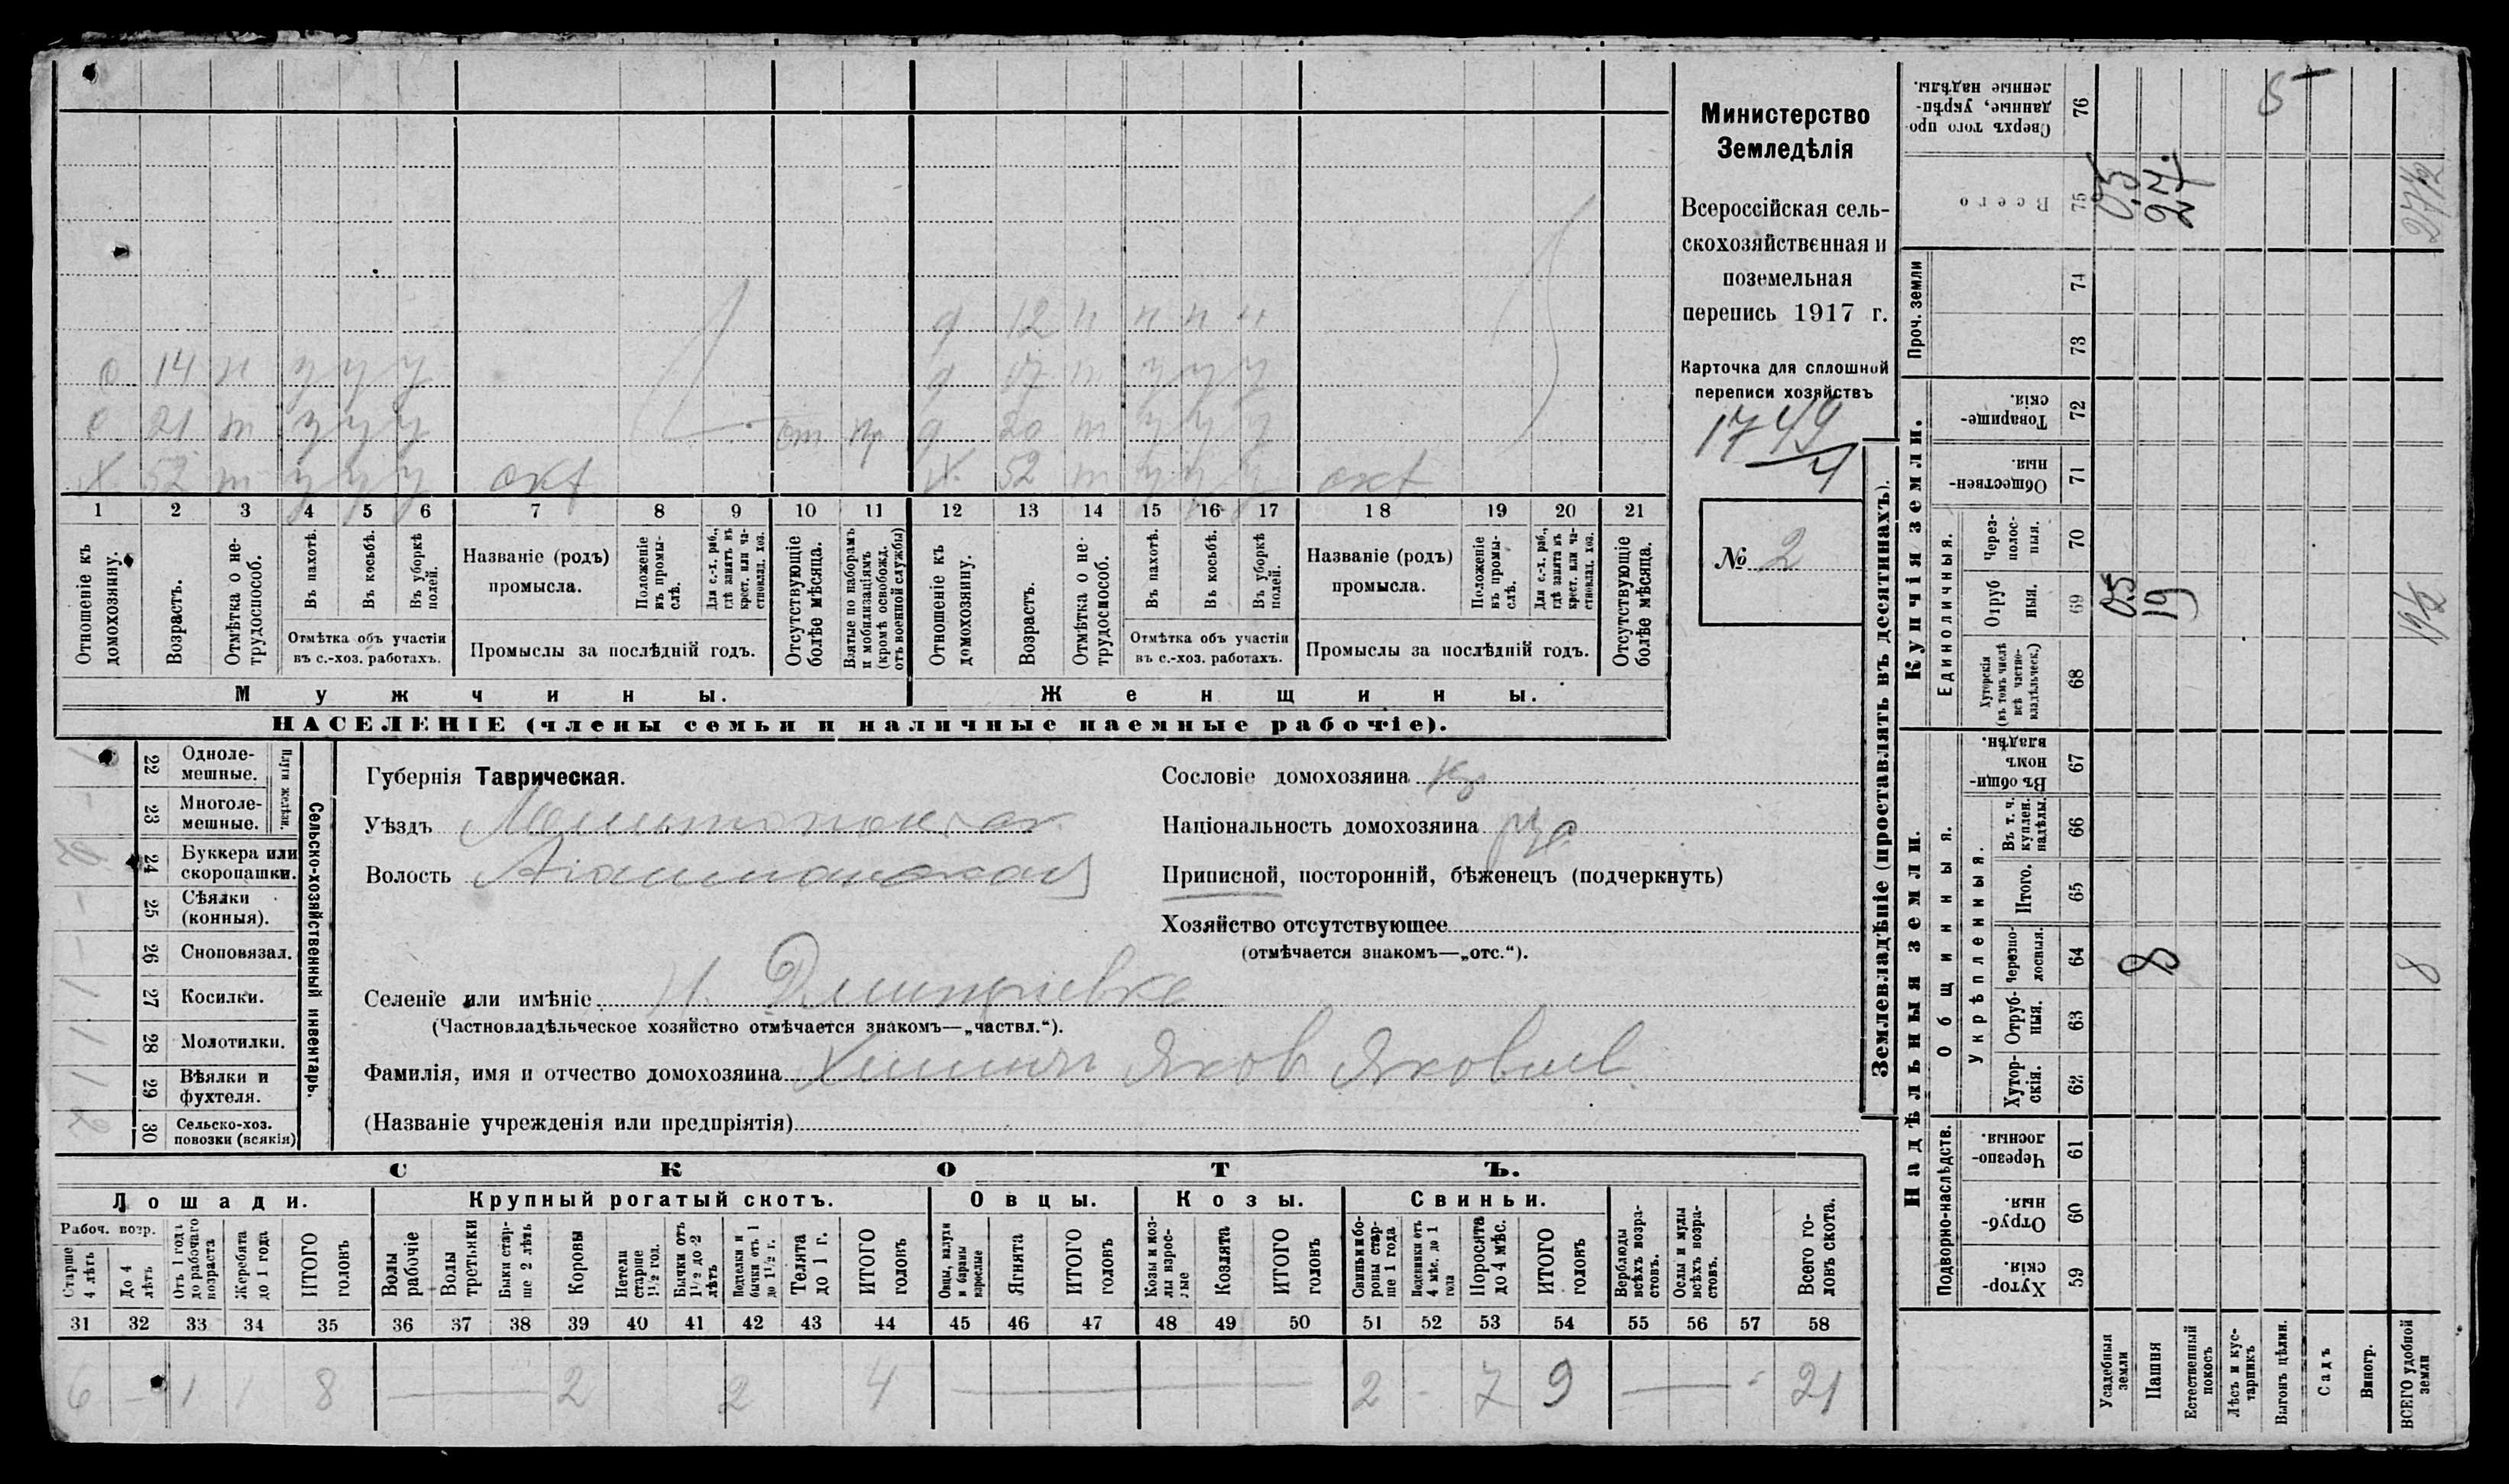 о 14 н у у у
с 21 т у у у от пр
х 52 т у у у окт
д 12 н н н н
д 17 н у у у
д 20 т у у у
х 52 т у у у окт
1 2 3 4 5 6 7 8 9 10 11 12 13 14 15 16 17 18 19 20 21
Отношеніе къ домохозяину.
Возрастъ.
Отмѣтка о нетрудоспособ.
Въ пахотѣ.
Въ косьбѣ.
Въ уборкѣ полей.
Отмѣтка объ участіи
въ с.-хоз. работахъ.
Названіе (родъ)
промысла.
Положеніе въ промыслѣ.
Для с.-х. раб., гдѣ занятъ въ крест. или частновлад. хоз.
Промыслы за послѣдній годъ.
Отсутствующіе болѣе мѣсяца.
Взятые по наборамъ и мобилизаціямъ (кромѣ освобожд. отъ военной службы)
Отношеніе къ домохозяину.
Возрастъ.
Отмѣтка о нетрудоспособ.
Въ пахотѣ.
Въ косьбѣ.
Въ уборкѣ полей.
Отмѣтка объ участіи
въ с.-хоз. работахъ.
Названіе (родъ)
промысла.
Положеніе въ промыслѣ.
Для с.-х. раб., гдѣ занята въ крест. или частновлад. хоз.
Промыслы за послѣдній годъ.
Отсутствующіе болѣе мѣсяца.
Мужчины. Женщины.
НАСЕЛЕНІЕ (члены семьи и наличные наемные рабочіе).
Министерство
Земледѣлія
Всероссійская сель-
скохозяйственная и
поземельная
перепись 1917 г.
Карточка для сплошной
переписи хозяйствъ
1749
4
№ 2
Сельско-хозяйственный инвентарь.
Плуги желѣзн.
22 Одноле-
мешные.
23 Многоле-
мешные.
24 Буккера или
скоропашки.
25 Сѣялки
(конныя).
26 Сноповязал.
27 Косилки. 1
28 Молотилки. 1
29 Вѣялки и
фухтеля. 1
30 Сельско-хоз.
повозки (всякія) 2
Губернія Таврическая.
Уѣздъ Мелитопольск
Волость
Селеніе или имѣніе Н. Дмитріевка
(Частновладѣльческое хозяйство отмѣчается знакомъ—„частвл.“).
Фамилія, имя и отчество домохозяина Яков Яковлев
(Названіе учрежденія или предпріятія)
Сословіе домохозяина Кр
Національность домохозяина рус
Приписной, посторонній, бѣженецъ (подчеркнуть)
Хозяйство отсутствующее
(отмѣчается знакомъ—„отс.“).
СКОТЪ.
Лошади. Крупный рогатый скотъ. Овцы. Козы. Свиньи.
Рабоч. возр.
Старше 4 лѣтъ
До 4 лѣтъ
Отъ 1 года до рабочаго возраста
Жеребята до 1 года
ИТОГО головъ
Волы рабочіе
Волы третьяки
Быки старше 2 лѣтъ
Коровы
Нетели старше 1½ год.
Бычки отъ 1½ до 2 лѣтъ
Подтелки и бычки отъ 1 до 1½ г.
Телята до 1 г.
ИТОГО головъ
Овцы, валухи и бараны взрослые
Ягнята
ИТОГО головъ
Козы и козлы взрослые
Козлята
ИТОГО головъ
Свиньи и боровы старше 1 года
Подсвинки отъ 4 мѣс. до 1 года
Поросята до 4 мѣс.
ИТОГО головъ
Верблюды всѣхъ возрастовъ.
Ослы и мулы всѣхъ возрастовъ.
Всего головъ скота.
31 32 33 34 35 36 37 38 39 40 41 42 43 44 45 46 47 48 49 50 51 52 53 54 55 56 57 58
6 – 1 1 8 — 2 2 4 — 2 - 7 9 — 21
Землевладѣніе (проставлять въ десятинахъ).
Надѣльныя земли.
Купчія земли.
Проч. земли
Подворно-наслѣдств.
Общинныя.
Укрѣпленныя.
Единоличныя.
Хутор-
скія. 59
Отруб-
ныя. 60
Черезпо-
лосныя. 61
Хутор-
скія. 62
Отруб-
ныя. 63
Черезпо-
лосныя. 64
Итого. 65
Въ т. ч. куплен. надѣлы. 66
Въ общи-
номъ
владѣн. 67
Хуторскія (въ томъ числѣ всѣ частно-владѣльческ.) 68
Отруб
ныя. 69
Через-
полос-
ныя. 70
Обществен-
ныя. 71
Товарище-
скія. 72
73
74
Всего 75
Сверхъ того про
данные, укрѣп-
ленные надѣлы. 76
Усадебныя земли 0,5 0,5
Пашня 8 19 27.
Естественный покосъ
Лѣсъ и кустарникъ
Выгонъ цѣлин.
Садъ
Виногр.
ВСЕГО удобной земли 8 19½ 27½